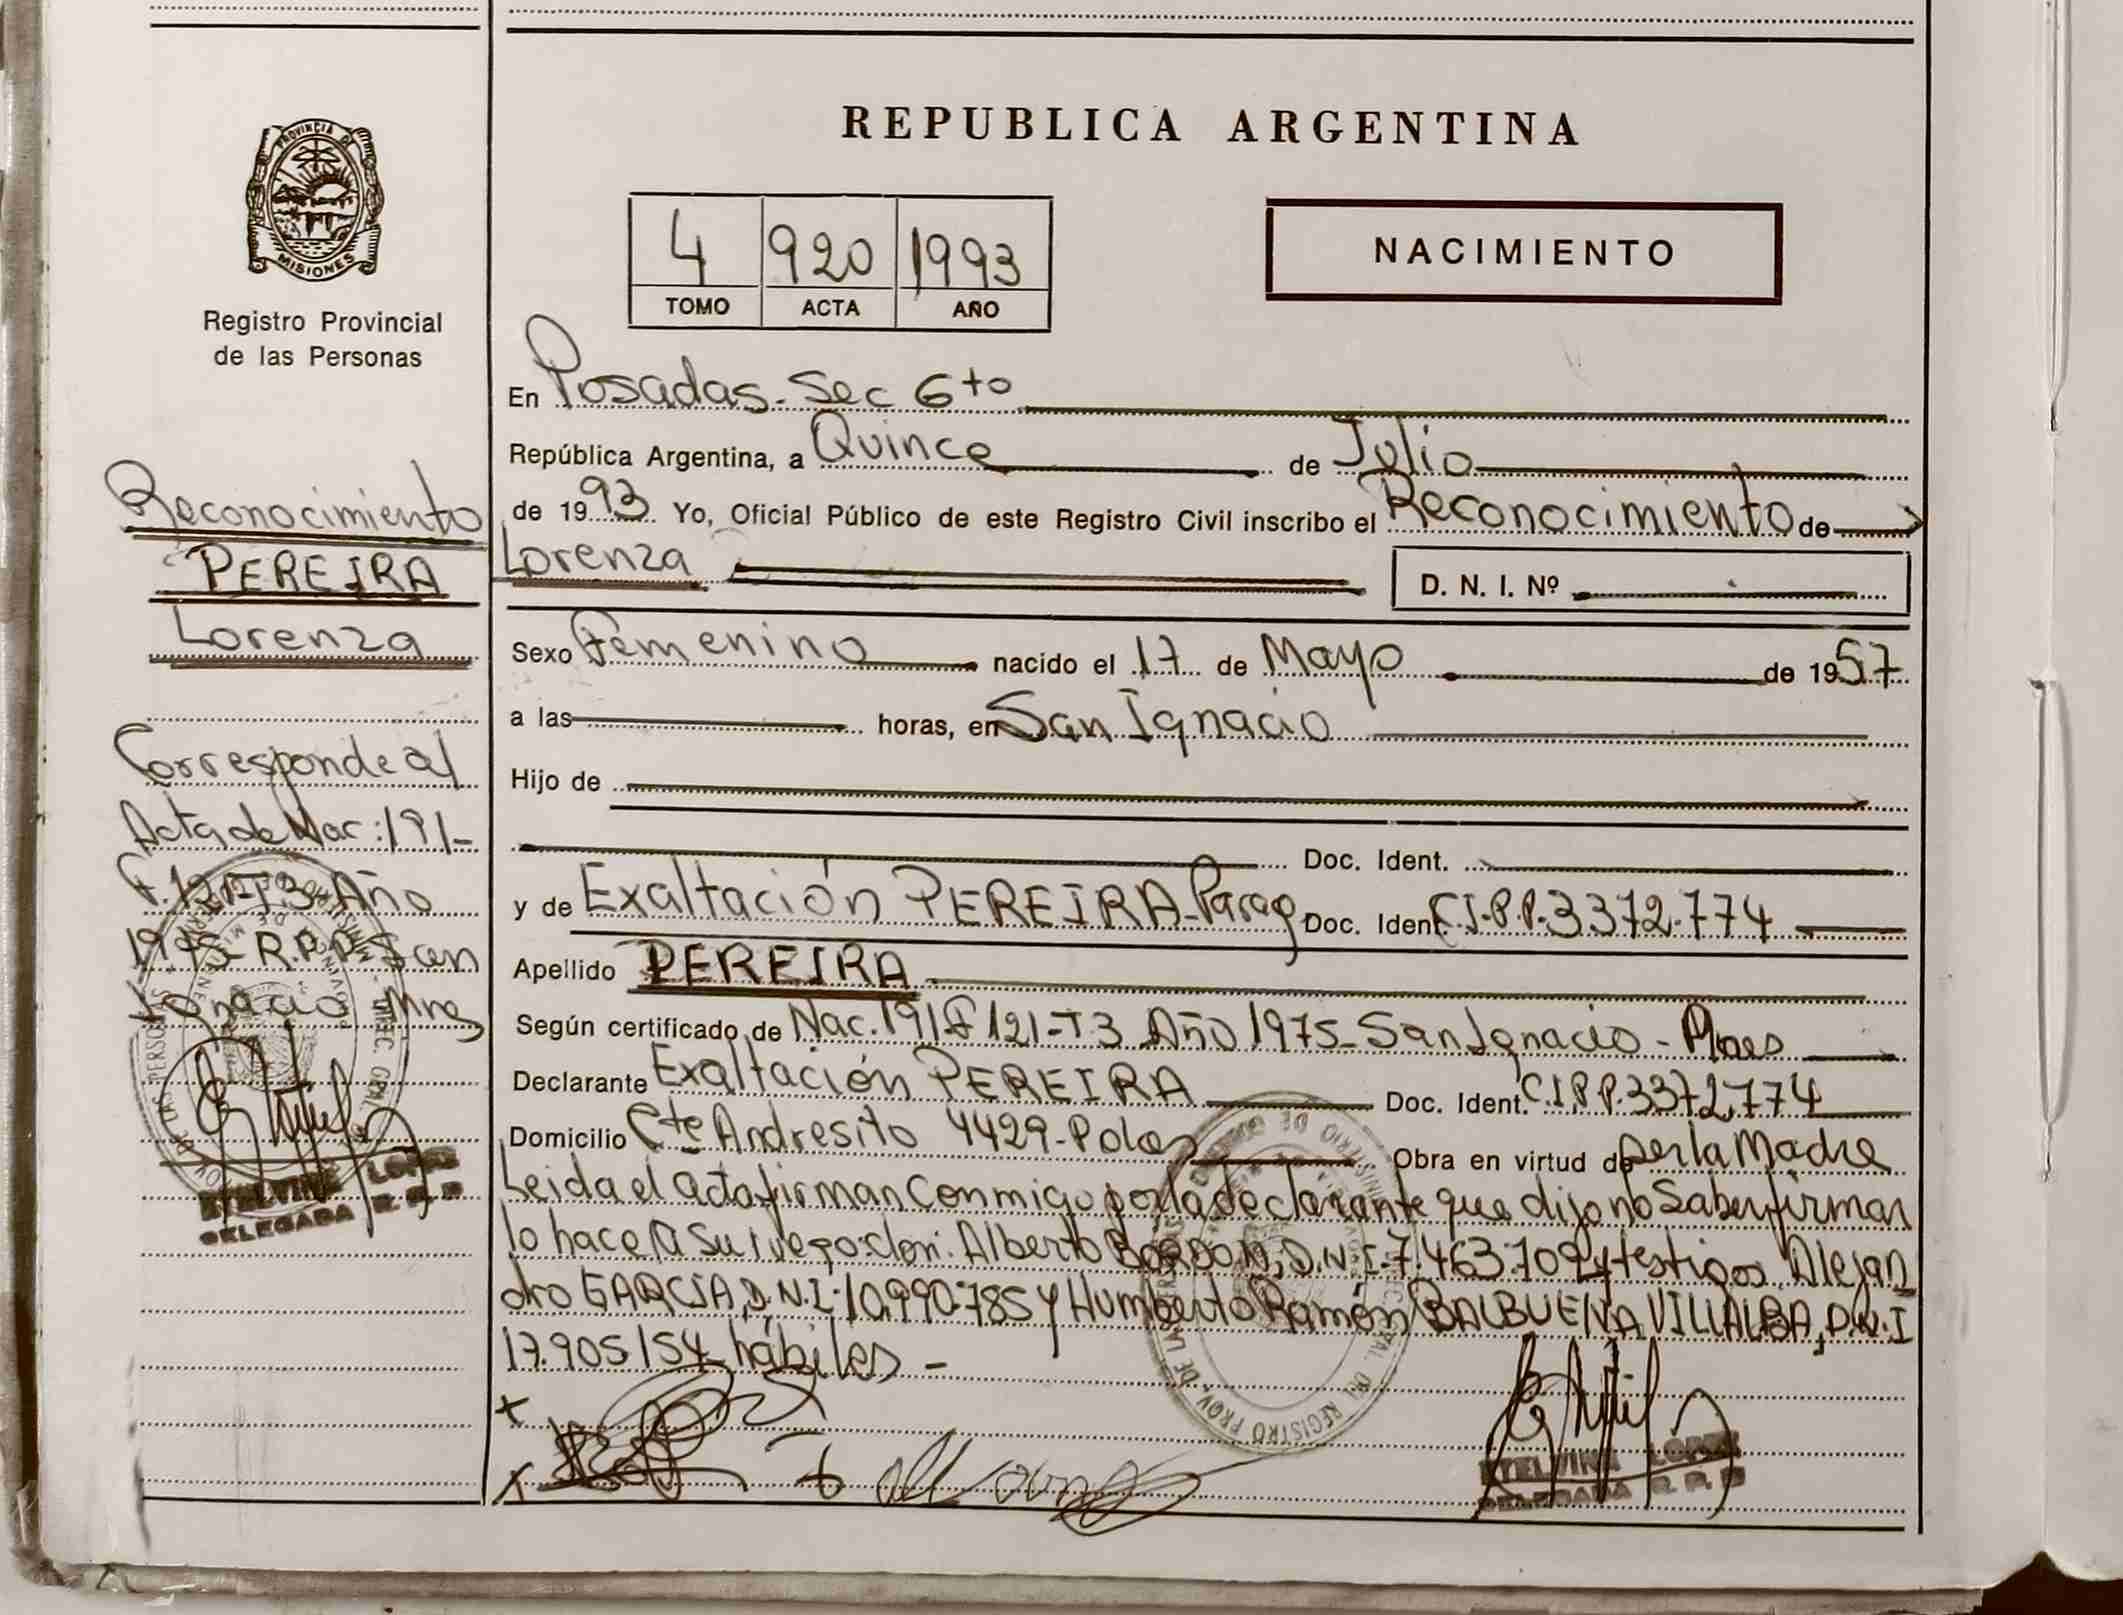 REPUBLICA ARGENTINA
PROVINCIA DE
MISIONES
Registro Provincial
de las Personas
4 920 1993
TOMO ACTA AÑO
NACIMIENTO
En Posadas. Sec 6to
República Argentina, a Quince de Julio
de 1993 Yo, Oficial Público de este Registro Civil inscribo el Reconocimiento de
Lorenza D. N. I. Nº
Sexo Femenino nacido el 17 de Mayo de 1957
a las horas, en San Ignacio
Hijo de
Doc. Ident.
y de Exaltación PEREIRA-Parag Doc. Ident C.I.P.P.3372.774
Apellido PEREIRA
Según certificado de Nac. 191 F 121-T3 Año 1975-San Ignacio -
Declarante Exaltación PEREIRA Doc. Ident. C.I.P.P.3372774
Domicilio Cte Andresito 4429-Pdas Obra en virtud de ser la Madre
Leida el acta firman conmigo por la declarante que dijo no Saber firmar
lo hace A su ruego: don: Alberto BORDON, D.N.I-7.463.709 y testigos Alejan
dro GARCIA, D.N.I-10.990.785 y Humberto Ramón BALBUENA VILLALBA, D.N.I
17.905.154 hábiles -
ETELVINA LOPEZ
DELEGADA R. P. P
Reconocimiento
PEREIRA
Lorenza
Corresponde al
Acta de Nac: 191-
F. 121-T3-Año
1975-R.P.P San
Ignacio Mnes
ETELVINA LOPEZ
DELEGADA R. P. P